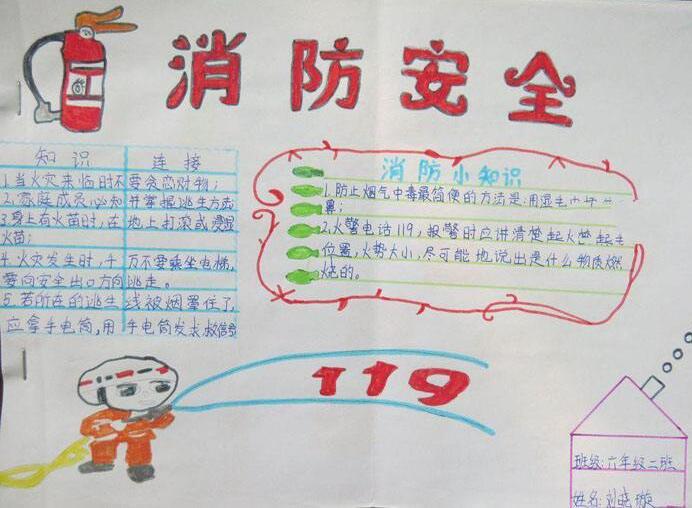 消防安全
知识 连接
1.当火灾来临时不要贪恋财物;
2.家庭成员必知并掌握逃生方法
3.身上有火苗时,在地上打滚或浸湿
火苗;
4.火灾发生时,千万不要乘坐电梯,
要向安全出口方向逃走。
5.若所在的逃生线被烟罩住了
应拿手电筒,用手电筒发求救信号
消防小知识
1.防止烟气中毒最简便的方法是:用湿毛
鼻;
2,火警电话119,报警时应讲清楚起火
位置,火势大小,尽可能地说出是什么物质燃
烧的。
119
班级:六年级二班
姓名:刘晓璇